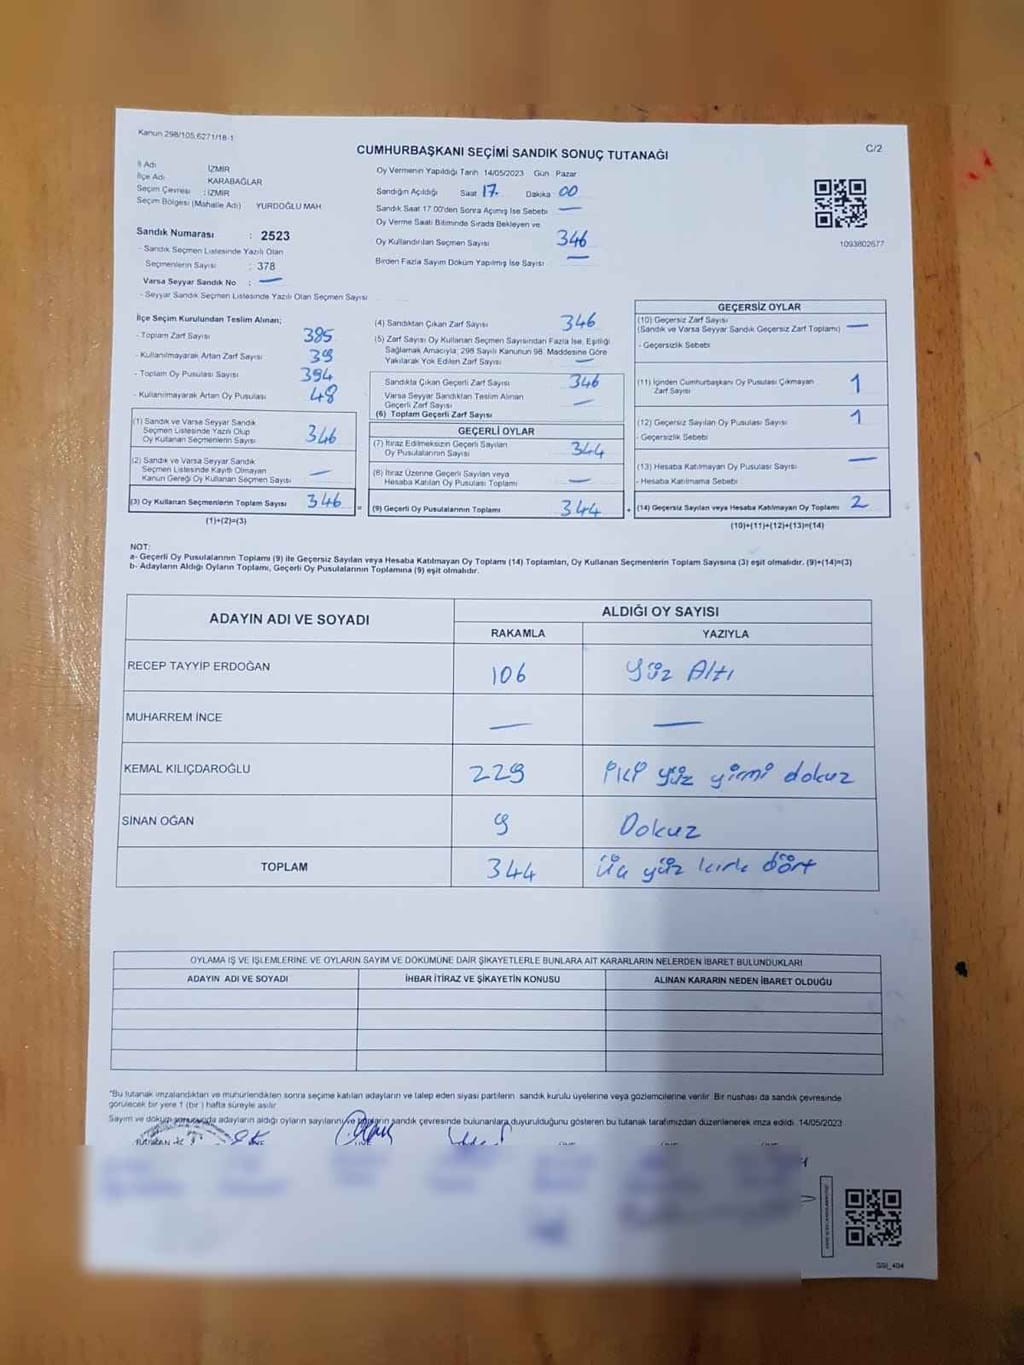 Kanun 298/105,6271/18-1
C/2
CUMHURBAŞKANI SEÇİMİ SANDIK SONUÇ TUTANAĞI
İl Adı İZMİR
İlçe Adı KARABAĞLAR
Seçim Çevresi : İZMİR
Seçim Bölgesi (Mahalle Adı) YURDOĞLU MAH
Sandık Numarası : 2523
- Sandık Seçmen Listesinde Yazılı Olan
Seçmenlerin Sayısı : 378
Varsa Seyyar Sandık No : —
- Seyyar Sandık Seçmen Listesinde Yazılı Olan Seçmen Sayısı
Oy Vermenin Yapıldığı Tarih 14/05/2023 Gün Pazar
Sandığın Açıldığı Saat 17. Dakika 00
Sandık Saat 17.00'den Sonra Açımış İse Sebebi —
Oy Verme Saati Bitiminde Sırada Bekleyen ve
Oy Kullandırılan Seçmen Sayısı 346
Birden Fazla Sayım Döküm Yapılmış İse Sayısı —
1093802677
İlçe Seçim Kurulundan Teslim Alınan;
- Toplam Zarf Sayısı 385
- Kullanılmayarak Artan Zarf Sayısı 39
- Toplam Oy Pusulası Sayısı 394
- Kullanılmayarak Artan Oy Pusulası 48
(1) Sandık ve Varsa Seyyar Sandık
Seçmen Listesinde Yazılı Olup
Oy Kullanan Seçmenlerin Sayısı 346
(2) Sandık ve Varsa Seyyar Sandık
Seçmen Listesinde Kayıtlı Olmayan
Kanun Gereği Oy Kullanan Seçmen Sayısı —
(3) Oy Kullanan Seçmenlerin Toplam Sayısı 346
(1)+(2)=(3)
(4) Sandıktan Çıkan Zarf Sayısı 346
(5) Zarf Sayısı Oy Kullanan Seçmen Sayısından Fazla İse, Eşitliği
Sağlamak Amacıyla; 298 Sayılı Kanunun 98. Maddesine Göre
Yakılarak Yok Edilen Zarf Sayısı —
Sandıkta Çıkan Geçerli Zarf Sayısı 346
Varsa Seyyar Sandıktan Teslim Alınan
Geçerli Zarf Sayısı —
(6) Toplam Geçerli Zarf Sayısı
GEÇERLİ OYLAR
(7) İtiraz Edilmeksizin Geçerli Sayılan
Oy Pusulalarının Sayısı 344
(8) İtiraz Üzerine Geçerli Sayılan veya
Hesaba Katılan Oy Pusulası Toplamı —
= (9) Geçerli Oy Pusulalarının Toplamı 344 +
GEÇERSİZ OYLAR
(10) Geçersiz Zarf Sayısı
(Sandık ve Varsa Seyyar Sandık Geçersiz Zarf Toplamı) —
- Geçersizlik Sebebi
(11) İçinden Cumhurbaşkanı Oy Pusulası Çıkmayan
Zarf Sayısı 1
(12) Geçersiz Sayılan Oy Pusulası Sayısı 1
- Geçersizlik Sebebi
(13) Hesaba Katılmayan Oy Pusulası Sayısı —
- Hesaba Katılmama Sebebi
(14) Geçersiz Sayılan veya Hesaba Katılmayan Oy Toplamı 2
(10)+(11)+(12)+(13)=(14)
NOT:
a- Geçerli Oy Pusulalarının Toplamı (9) ile Geçersiz Sayılan veya Hesaba Katılmayan Oy Toplamı (14) Toplamları, Oy Kullanan Seçmenlerin Toplam Sayısına (3) eşit olmalıdır. (9)+(14)=(3)
b- Adayların Aldığı Oyların Toplamı, Geçerli Oy Pusulalarının Toplamına (9) eşit olmalıdır.
ADAYIN ADI VE SOYADI ALDIĞI OY SAYISI
RAKAMLA YAZIYLA
RECEP TAYYİP ERDOĞAN 106 Yüz Altı
MUHARREM İNCE — —
KEMAL KILIÇDAROĞLU 229 iki yüz yirmi dokuz
SİNAN OĞAN 9 Dokuz
TOPLAM 344 Üç yüz kırk dört
OYLAMA İŞ VE İŞLEMLERİNE VE OYLARIN SAYIM VE DÖKÜMÜNE DAİR ŞİKAYETLERLE BUNLARA AİT KARARLARIN NELERDEN İBARET BULUNDUKLARI
ADAYIN ADI VE SOYADI İHBAR İTİRAZ VE ŞİKAYETİN KONUSU ALINAN KARARIN NEDEN İBARET OLDUĞU
*Bu tutanak imzalandıktan ve mühürlendikten sonra seçime katılan adayların ve talep eden siyasi partilerin sandık kurulu üyelerine veya gözlemcilerine verilir. Bir nüshası da sandık çevresinde
görülecek bir yere 1 (bir) hafta süreyle asılır.
Sayım ve döküm sonucunda adayların aldığı oyların sayılarını ve bunların sandık çevresinde bulunanlara duyurulduğunu gösteren bu tutanak tarafımızdan düzenlenerek imza edildi. 14/05/2023